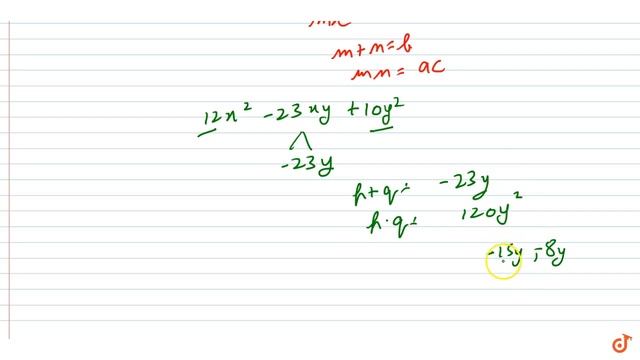 m+n=b
mn = ac
12x² -23xy +10y²
-23y
p+q= -23y
p·q= 120y²
-15y, -8y